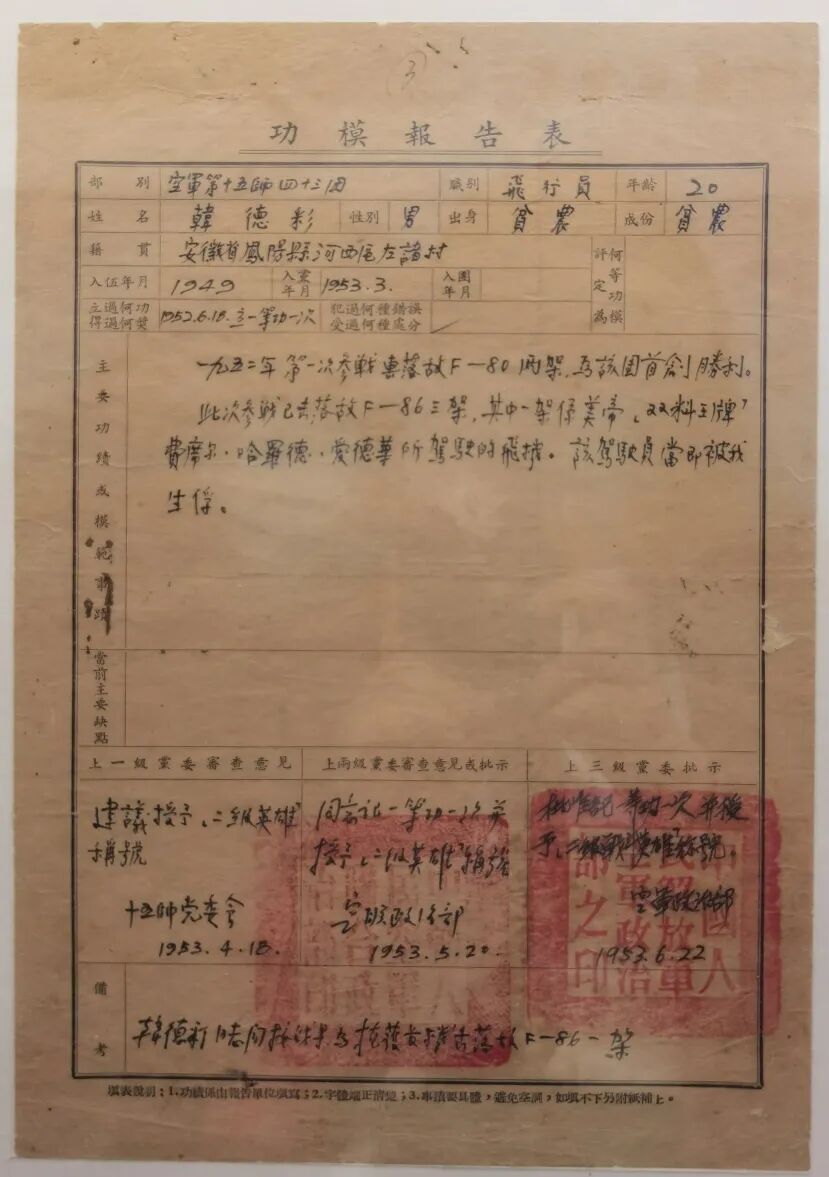 3
功模報告表
部別 空軍第十五師四十三团 職別 飛行員 年齡 20
姓名 韓德彩 性別 男 出身 貧農 成份 貧農
籍貫 安徽省鳳陽縣河西 左諸村 評定為何等功模
入伍年月 1949 入黨年月 1953.3. 入團年月
立過何功得過何獎 1952.6.18.立一等功一次 犯過何種錯誤受過何種處分
主要功績或模範事蹟
一九五二年第一次参战 落敌F-80两架,为該团首創勝利。
此次参战已击落敌F-86三架,其中一架係美帝“双料王牌”
費席尔·哈羅德·愛德華所駕駛的飛机。該駕駛員當即被我
生俘。
當前主要缺點
上一級黨委審查意見 上兩級黨委審查意見或批示 上三級黨委批示
建議授予“二級英雄”
稱號
十五師党委会
1953.4.18.
同意記一等功一次并
授予“二级英雄”稱號
空 政治部
1953.5.20.
批准記 等功一次并授
予“二級戰鬥英雄”称號。
空軍政治部
1953.6.22
中國人民解放軍 軍政治部之印
備考
韓德彩同志 击落敌F-86一架
填表說明:1.功績係由報告單位填寫;2.字體端正清楚;3.事蹟要具體,避免空洞,如填不下另附紙補上。